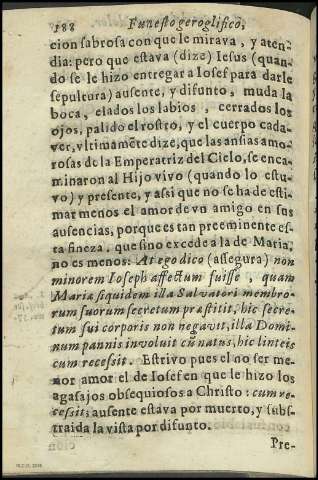 188 Funesto geroglifico,
cion sabrosa con que le mirava, y aten-
dia: pero que estava (dize) Iesus (quan-
do se le hizo entregar a Iosef para darle
sepultura) ausente, y difunto, muda la
boca, elados los labios, cerrados los
ojos, palido el rostro, y el cuerpo cada-
ver, vltimamẽte dize, que las ansias amo-
rosas de la Emperatriz del Cielo, se enca-
minaron al Hijo vivo (quando lo estu-
vo) y presente, y assi que no se ha de esti-
mar menos el amor de vn amigo en sus
ausencias, porque es tan preeminente es-
ta fineza, que sino excede a la de Maria,
no es menos: At ego dico (assegura) non
minorem Ioseph affectum fuisse, quam
Mariæ, siquidem illa Salvatori membro-
rum suorum secretum præstitit, hic secre-
tum sui corporis non negavit, illa Domi-
num pannis involuit cũ natus, hic linteis
cum recessit. Estrivo pues el no ser me-
nor amor el de Iosef en que le hizo los
agasajos obsequiosos a Christo: cum re-
cessit; ausente estava por muerto, y subs-
traida la vista por difunto.
Pre-